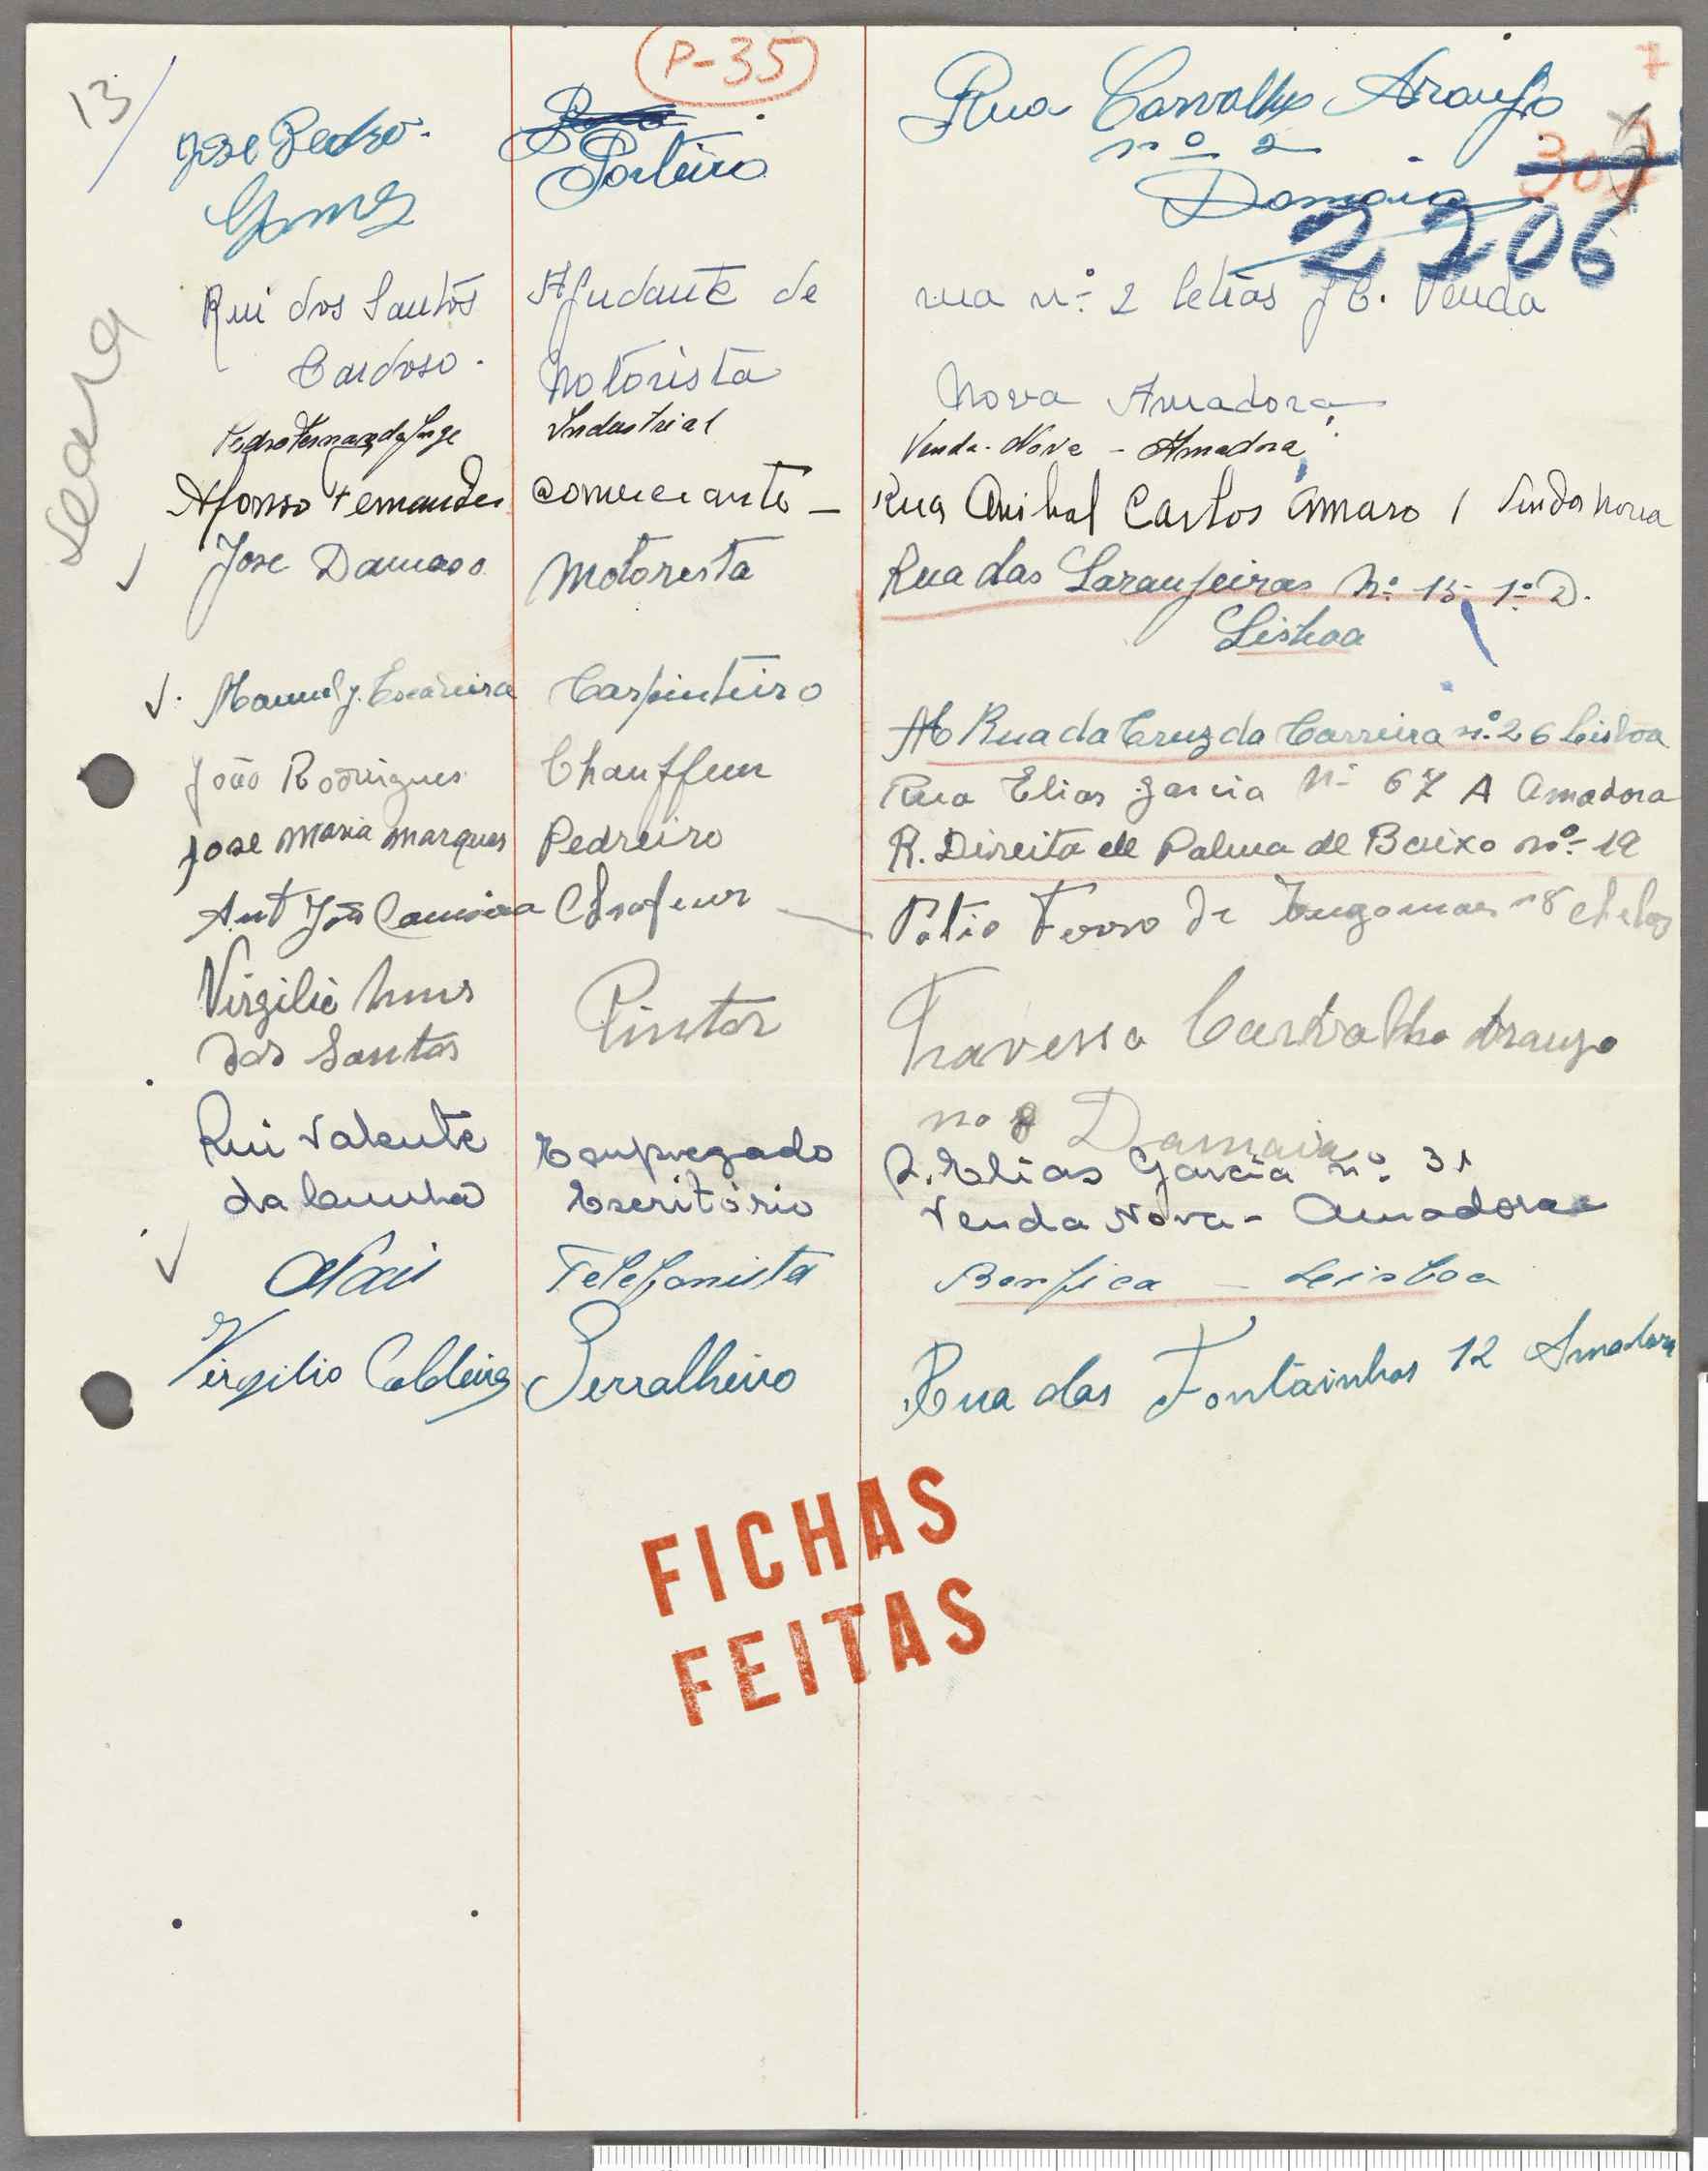 13/
P-35
7
José Pedro Gomes
Porteiro
Rua Carvalho Araujo
nº 2
Damaia
307
2206
Seara
Rui dos Santos Cardoso.
Ajudante de Motorista
rua nº 2 letras J C. Venda
Nova Amadora
Pedro Fernandes Jorge
Industrial
Venda-Nova - Amadora
Afonso Fernandes
Comerciante -
Rua Anibal Carlos Amaro / Venda Nova
José Damaso
Motorista
Rua das Laranjeiras Nº 15 1º D.
Lisboa
Manuel J.
Carpinteiro
Rua da Cruz da Carreira nº 26 Lisboa
João Rodrigues
Chauffeur
Rua Elias Garcia Nº 67 A Amadora
Jose Maria Marques
Pedreiro
R. Direita de Palma de Baixo nº 19
Ant João
Chofeur
Patio de 8 Chelas
Virgilio dos Santos
Pintor
Travessa Carvalho Araujo
no Damaia
Rui Valente da Cunha
Empregado Escritório
R. Elias Garcia nº 31
Venda Nova - Amadora
Telefonista
Benfica - Lisboa
Virgilio Caldeira
Serralheiro
Rua das Fontainhas 12 Amadora
FICHAS
FEITAS